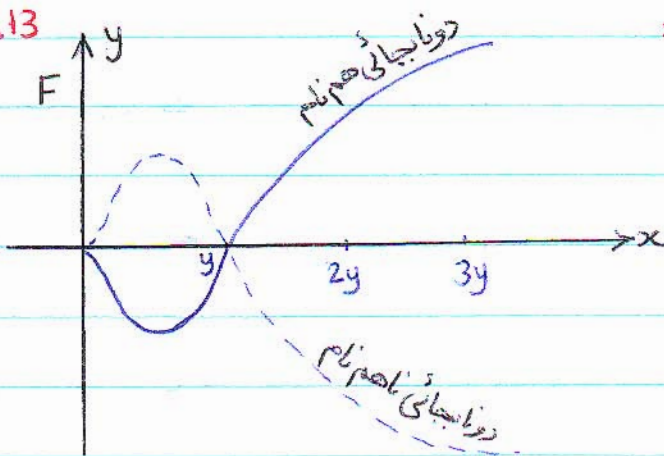 .13
y
F
دو نابجائی هم نام
x
y
2y
3y
دو نابجائی ناهم نام